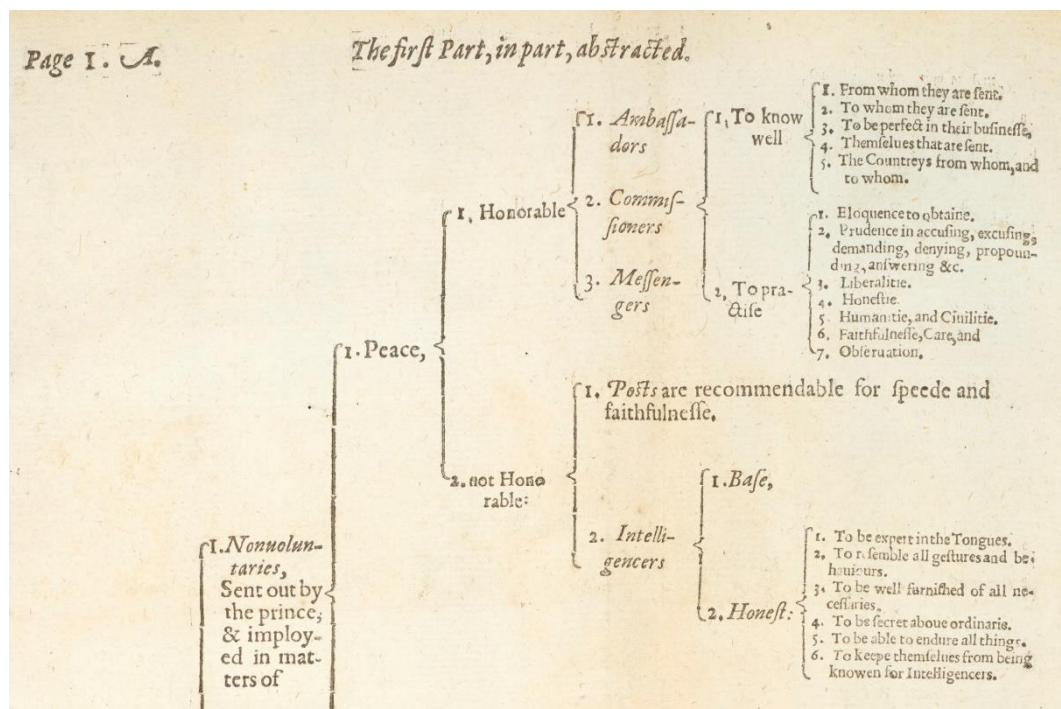 Page 1. A.
The first Part, in part, abstracted.
1. Nonuolun-
taries,
Sent out by
the prince,
& imploy-
ed in mat-
ters of
1. Peace,
1, Honorable
1. Ambassa-
dors
2. Commis-
sioners
3. Messen-
gers
1, To know
well
1. From whom they are sent.
2. To whom they are sent.
3. To be perfect in their businesse,
4. Themselues that are sent.
5. The Countreys from whom, and
to whom.
2, To pra-
ctise
1. Eloquence to obtaine.
2. Prudence in accusing, excusing,
demanding, denying, propoun-
ding, answering &c.
3. Liberalitie.
4. Honestie.
5. Humanitie, and Ciuilitie.
6. Faithfulnesse, Care, and
7. Obseruation.
2. not Hono
rable:
1. Posts are recommendable for speede and
faithfulnesse.
2. Intelli-
gencers
1. Base,
2. Honest:
1. To be expert in the Tongues.
2. To resemble all gestures and be-
hauiours.
3. To be well furnished of all ne-
cessaries.
4. To be secret aboue ordinarie.
5. To be able to endure all things.
6. To keepe themselues from being
knowen for Intelligencers.